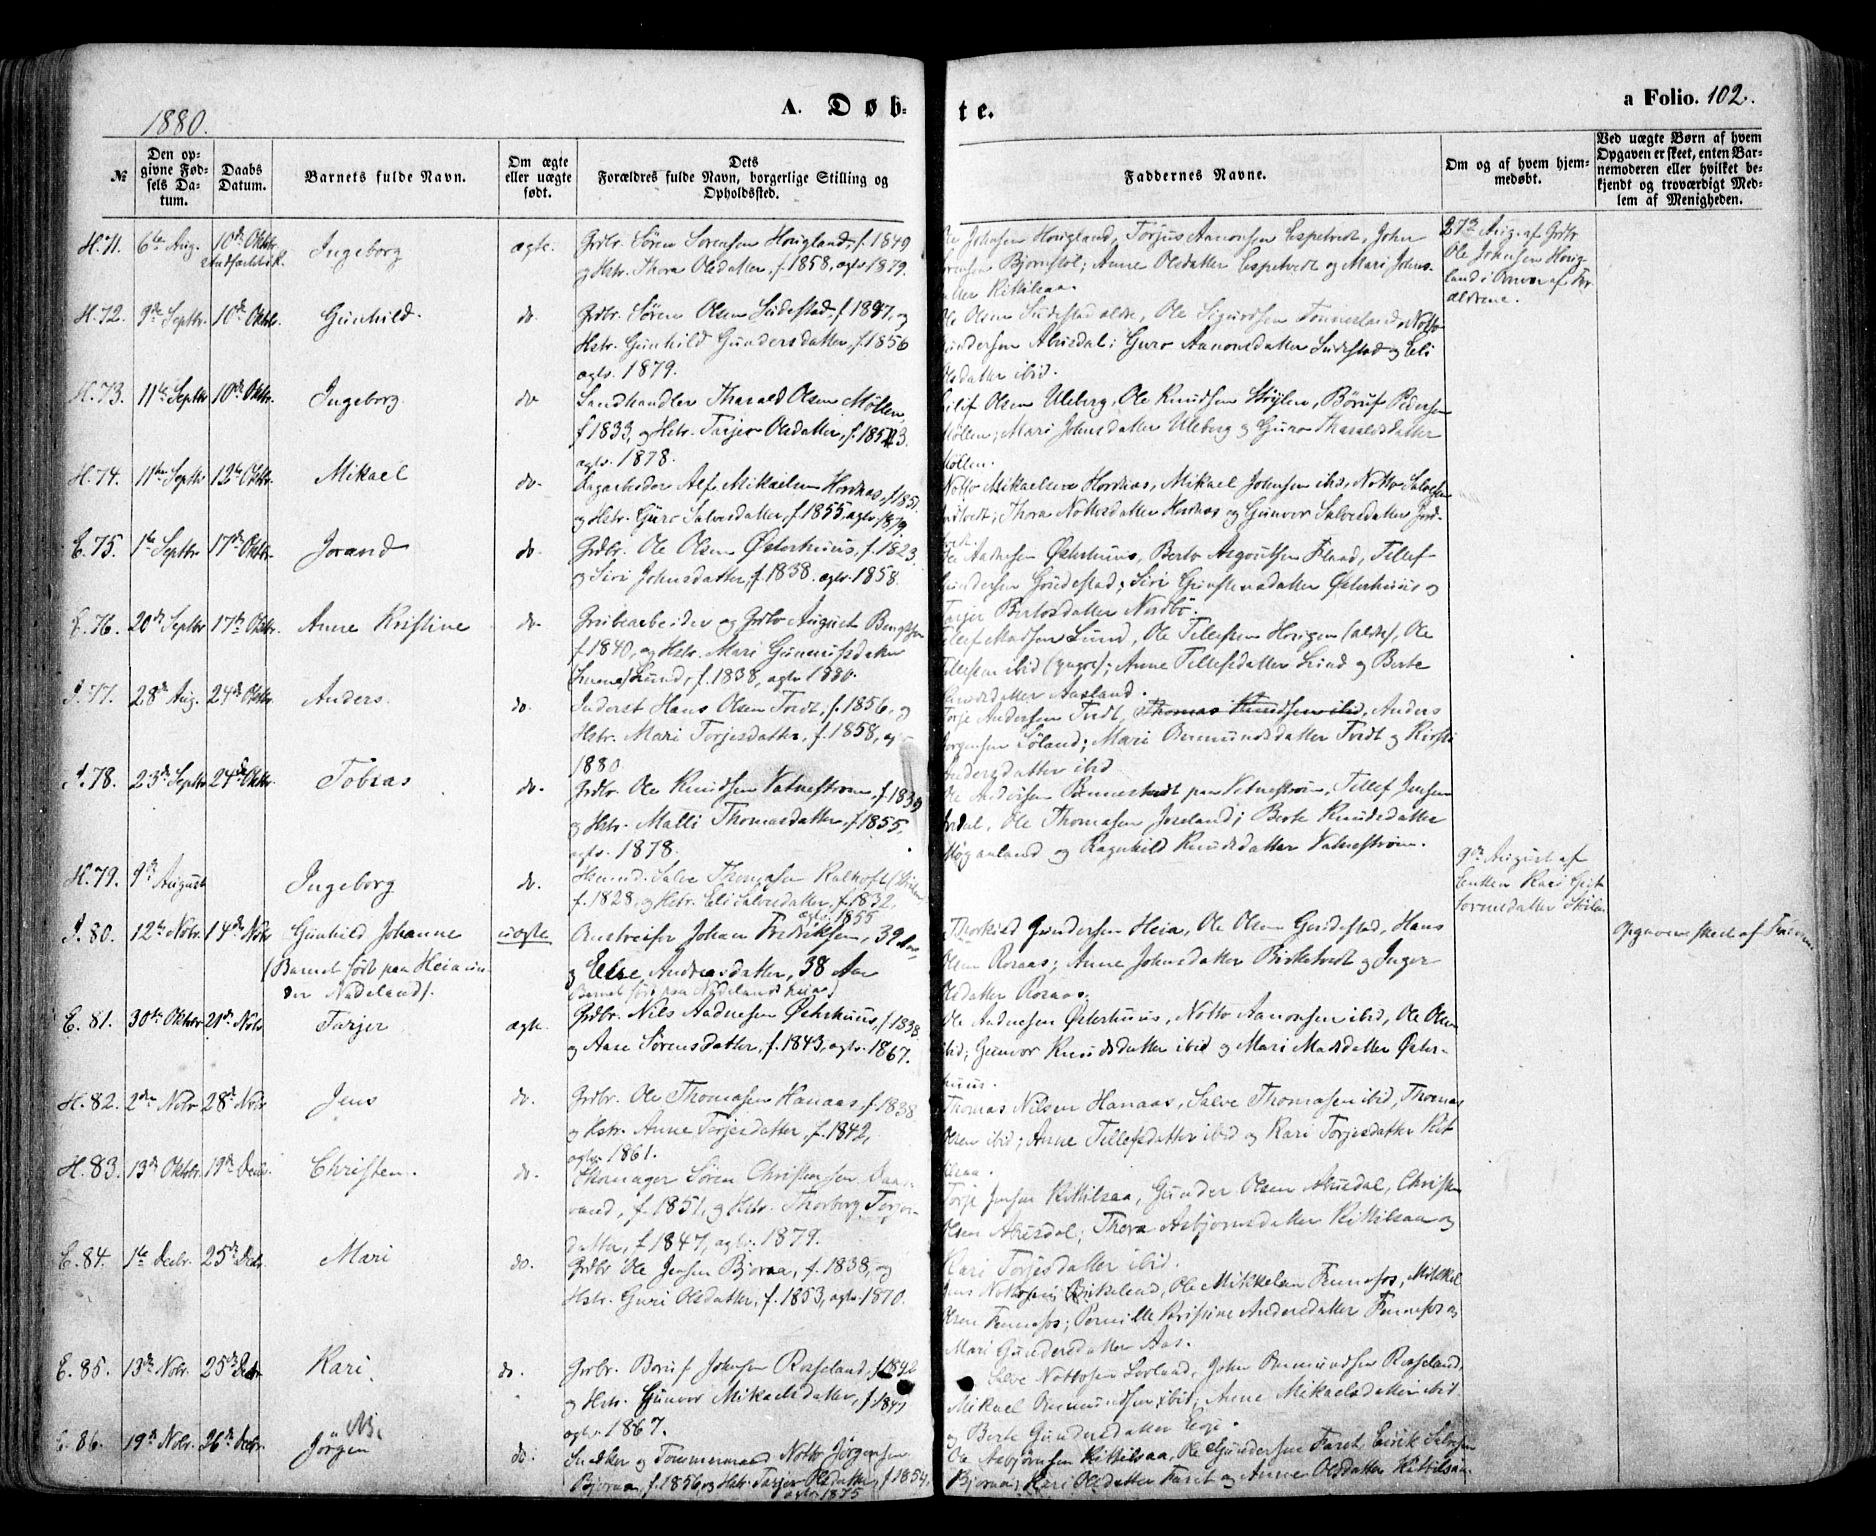 1880.
A. Døb-
te.
a Folio. 102.
№
Den op-
givne Fød-
sels Da-
tum.
Daabs
Datum.
Barnets fulde Navn.
Om ægte
eller uægte
født.
Dets
Forældres fulde Navn, borgerlige Stilling og
Opholdssted.
Faddernes Navne.
Om og af hvem hjem-
medøbt.
Ved uægte Børn af hvem
Opgaven er skeet, enten Bar-
nemoderen eller hvilket be-
kjendt og troværdigt Med-
lem af Menigheden.
H. 71. 6te Aug. 10de Oktbr. Ingeborg ægte. Grdbr. Sören Sörensen Hougland, f. 1849
og Hstr. Thora Olsdatter, f. 1858, agtv. 1879.
Johnsen Hougland, Torjus Aanonsen Espetvedt, John
Bjornstøl; Anne Olsdatter Espetvedt og Mari Johns-
datter Kittilsaa.
27de Aug. af Grdbr
Ole Johnsen Houg-
land i Anvær af For-
ældrene.
H. 72. 9de Septbr. 10de Oktbr. Gunhild. do. Grdbr. Sören Olsen Sudestad, f. 1847, og
Hstr. Gunhild Gundersdatter, f. 1856
agtv. 1879.
Ole Olsen Sudestad ældre, Ole Sigurdsen Tonnesland, Notto
Gundersen Abusdal; Guro Aanonsdatter Sudestad og Eli
Olsdatter ibid.
H. 73. 11te Septbr 10de Oktbr. Ingeborg. do Landhandler Tharald Olsen Møllen,
f 1833, og Hstr. Tarjer Olsdatter, f. 1853.
agtv. 1878.
Olsen Uleberg, Ole Knudsen Støylen, Børuf Pedersen
Møllen; Mari Johnsdatter Uleberg og Guro Tharaldsdatter
Møllen.
H. 74. 11te Septbr 12te Oktbr. Mikael do. Dagarbeider Alf Mikaelsen Hordnæs, f. 1851.
og Hstr. Guro Salvesdatter, f. 1855, agtv. 1879.
Notto Mikaelsen Hordnæs, Mikael Johnsen ibid, Notto Salvesen
Thora Nottosdatter Hordnæs og Gunvor Salvesdatter
E. 75. 1te Septbr 17de Oktbr. Jorand do. Grdbr. Ole Olsen Østerhuus, f. 1823.
og Siri Johnsdatter, f. 1838. agtv. 1858.
Ole Aadnesen Østerhuus, Berto Asgoutsen Flaad, Tellef
Gundersen Goudestad; Siri Gunstensdatter Østerhuus og
Tarjer Bertosdatter Nordbö.
E. 76. 20de Septbr 17de Oktbr. Anne Kristine do. Grubearbeider og Grdbr August Bengtsen
f. 1840, og Hstr. Mari Gunnufsdatter
Lund, f. 1838, agtv 1880.
Tellef Madsen Lund, Ole Tellefsen Hougen (ældre), Ole
Tellefsen ibid (yngre); Anne Tellefsdatter Lund og Berte
datter Aasland.
I. 77. 28de Aug. 24de Oktbr Anders. do. Inderst Hans Olsen Tvedt, f. 1856, og
Hstr. Mari Torjesdatter, f. 1858, agtv
1880
Torje Andersen Tvedt, Thomas Knudsen ibid, Anders
Jørgensen Søland; Mari Aamundsdatter Tvedt og Kirsti
Andersdatter ibid
I. 78. 23de Septbr 24de Oktbr. Tobias do. Grdbr. Ole Knudsen Vatnestrøm, f. 1839
og Hstr. Malli Thomasdatter, f. 1855.
agtv. 1878.
paa Vatnestrøm, Tellef Jensen
Ole Thomasen Joreland; Berte Knudsdatter
og Ragnhild Knudsdatter Vatnestrøm.
H. 79. 9de August Ingeborg do. Salve Thomasen
f. 1828, og Hstr. Eli Salvesdatter, f. 1832,
agtv. 1855
9de August af
Enken Kari
datter
I. 80. 12te Novbr. 14de Novbr Gunhild Johanne
(Barnet født paa Heia un-
der Nadeland).
uægte Johan Fredriksen, 39 Aar
og Else Andreasdatter, 38 Aar
Barnet født paa Nadelands heia)
Thorkild Gundersen Heia, Ole Olsen Goudestad, Hans
Olsen Roraas; Anne Johnsdatter Birketvedt og Inger
Olsdatter Roraas.
Opgaven skeet af
E. 81. 30te Oktbr 21de Novbr Tarjer ægte. Grdbr. Nils Aadnesen Østerhuus, f. 1838
og Aase Sørensdatter, f. 1843, agtv. 1867.
Ole Aadnesen Østerhuus, Notto Aanonsen ibid, Ole Olsen
ibid; Gunvor Knudsdatter ibid og Mari Madsdatter Øster-
huus.
H. 82. 2den Novbr 28de Novbr Jens do. Grdbr. Ole Thomasen Hanaas, f. 1838
og Hstr. Anne Torjesdatter, f. 1842,
agtv 1861.
Thomas Nilsen Hanaas, Salve Thomasen ibid, Thomas
Olsen ibid; Anne Tellefsdatter ibid og Kari Torjesdatter Kit-
tilsaa.
H. 83. 13de Oktbr. 19de Decbr. Christen. do. Skomager Sören Christensen
f. 1851, og Hstr. Thorborg Torjes-
datter, f. 1847, agtv. 1879.
Torje Jensen Kittilsaa, Gunder Olsen Abusdal, Christen
Olsen Abusdal; Thora Asbjørnsdatter Kittilsaa og
Kari Torjesdatter ibid.
E. 84. 1te Decbr. 25de Decbr. Mari do. Grdbr Ole Jensen Bjoraa, f. 1838, og
Hstr. Guri Olsdatter, f. 1853, agtv. 1870.
Jens Nottosen Birkeland, Ole Mikkelsen Fennefos, Mikkel
Olsen Fennefos; Pernille Kristine Andersdatter Fennefos og
Mari Gundersdatter Aas.
E. 85. 13de Novbr. 25de Decbr Kari. do. Grdbr. Boruf Johnsen Rosseland, f. 1842
og Hstr. Gunvor Mikaelsdatter, f. 1841
agtv. 1867.
Salve Nottosen Sorland, John Aamundsen Rosseland,
Mikael Aamundsen ibid, Anne Mikaelsdatter ibid.
og Berte Gundersdatter Eeije.
E. 86. 19de Novbr. 26de Decbr. NB.
Jörgen do. Snedker og Tømmermand Notto Jørgensen
Bjoraa, f. 1856, og Hstr. Tarjer Olsdatter, f. 1854,
agtv. 1875
Ole Asbjørnsen Kittilsaa, Ole Gundersen Faret, Eirik Salvesen
Bjoraa; Kari Olsdatter Faret og Anne Olsdatter Kittilsaa.